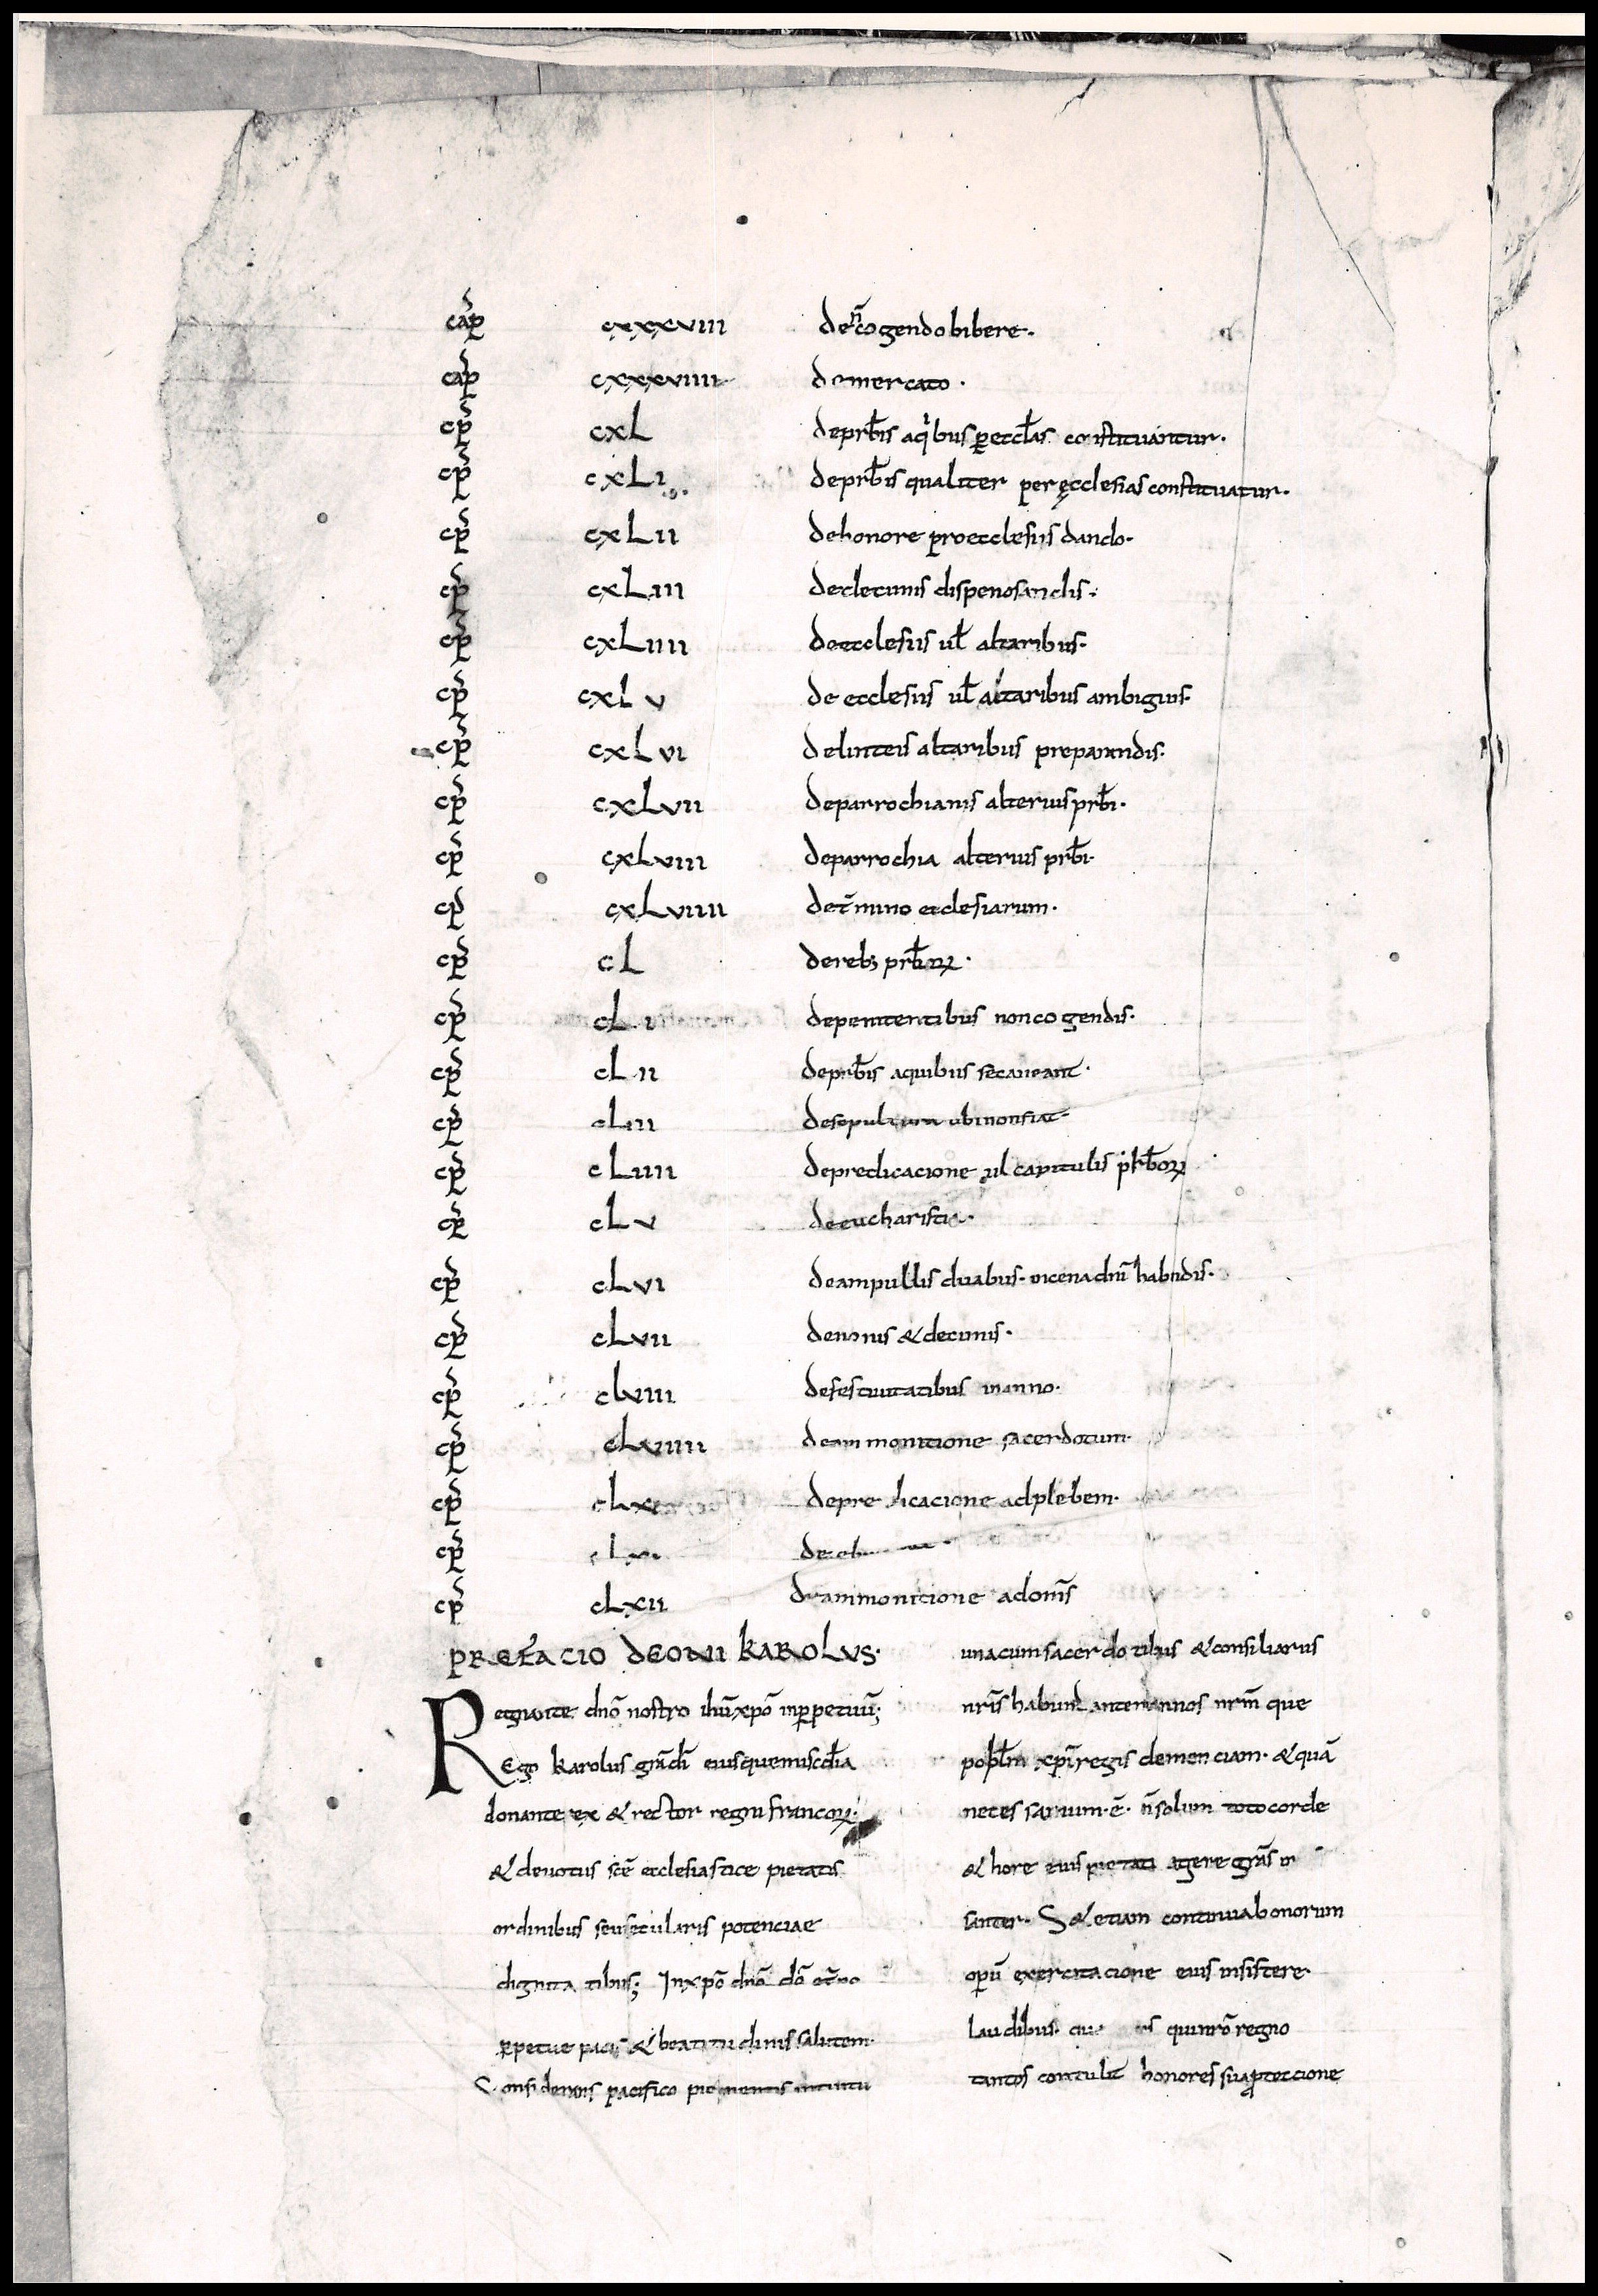 cap̄ cxxxviii de n̄ cogendo bibere.
cap̄ cxxxviiii de mercato.
cp̄ cxl de prb̄is a qⁱbus ꝑ eccl̄as constituantur.
cp̄ cxli de prb̄is qualiter per ęcclesias constituatur.
cp̄ cxlii de honore pro ecclesiis dando.
cp̄ cxliii de decimis dispensandis.
cp̄ cxliiii de ecclesiis ul̄ altaribus.
cp̄ cxlv de ecclesiis ul̄ altaribus ambiguis.
cp̄ cxlvi de linteis altaribus preparandis.
cp̄ cxlvii de parrochianis alterius prb̄i.
cp̄ cxlviii de parrochia alterius prb̄i.
cp̄ cxlviiii de t̄mino ecclesiarum.
cp̄ cl de rebꝫ prb̄iorꝝ.
cp̄ cli de penitentibus non cogendis.
cp̄ clii de prb̄is a quibus se caueant.
cp̄ cliii de sepultura ubi non fiat
cp̄ cliiii de predicacione ul capitulis
cp̄ clv de eucharistia.
cp̄ clvi de ampullis duabus. in cena dnī habndis.
cp̄ clvii de nonis & decimis.
cp̄ clviii de festiuitatibus in anno.
cp̄ clviiii de ammonitione sacerdotum.
cp̄ clx de predicacione ad plebem.
cp̄ clxi de
cp̄ clxii de ammonitione ad om̄s
PREFACIO DEOMI KAROLUS.
Regnante dnō nostro ihū xpō in ꝑpetuū;
Ego karolus gr̄a dī eiusque miscd̄ia
donante rex & rector regni francorꝝ.
& deuotus scē ecclesiastice pietatis
ordinibus seu secularis potenciae
dignitatibus; In xpō dnō dō et̄no
ꝑpetue pacis & beatitudinis salutem.
Considerans pacifico pie mentis intuitu
una cum sacerdotibus & consiliariis
nr̄is habundantem in nos nr̄m que
popl̄m xpī regis clemenciam. & quā
necessarium. ē. n̄ solum toto corde
& hore eius pietati agere grās in
santer. S& etiam continua bonorum
operū exercitacione eius insistere
laudibus. qui nr̄o regno
tantos contulit honores sua ꝓteccione